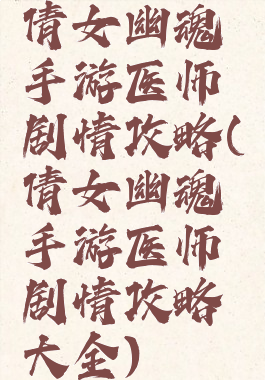 倩女幽魂
手游医师
剧情攻略(
倩女幽魂
手游医师
剧情攻略
大全)